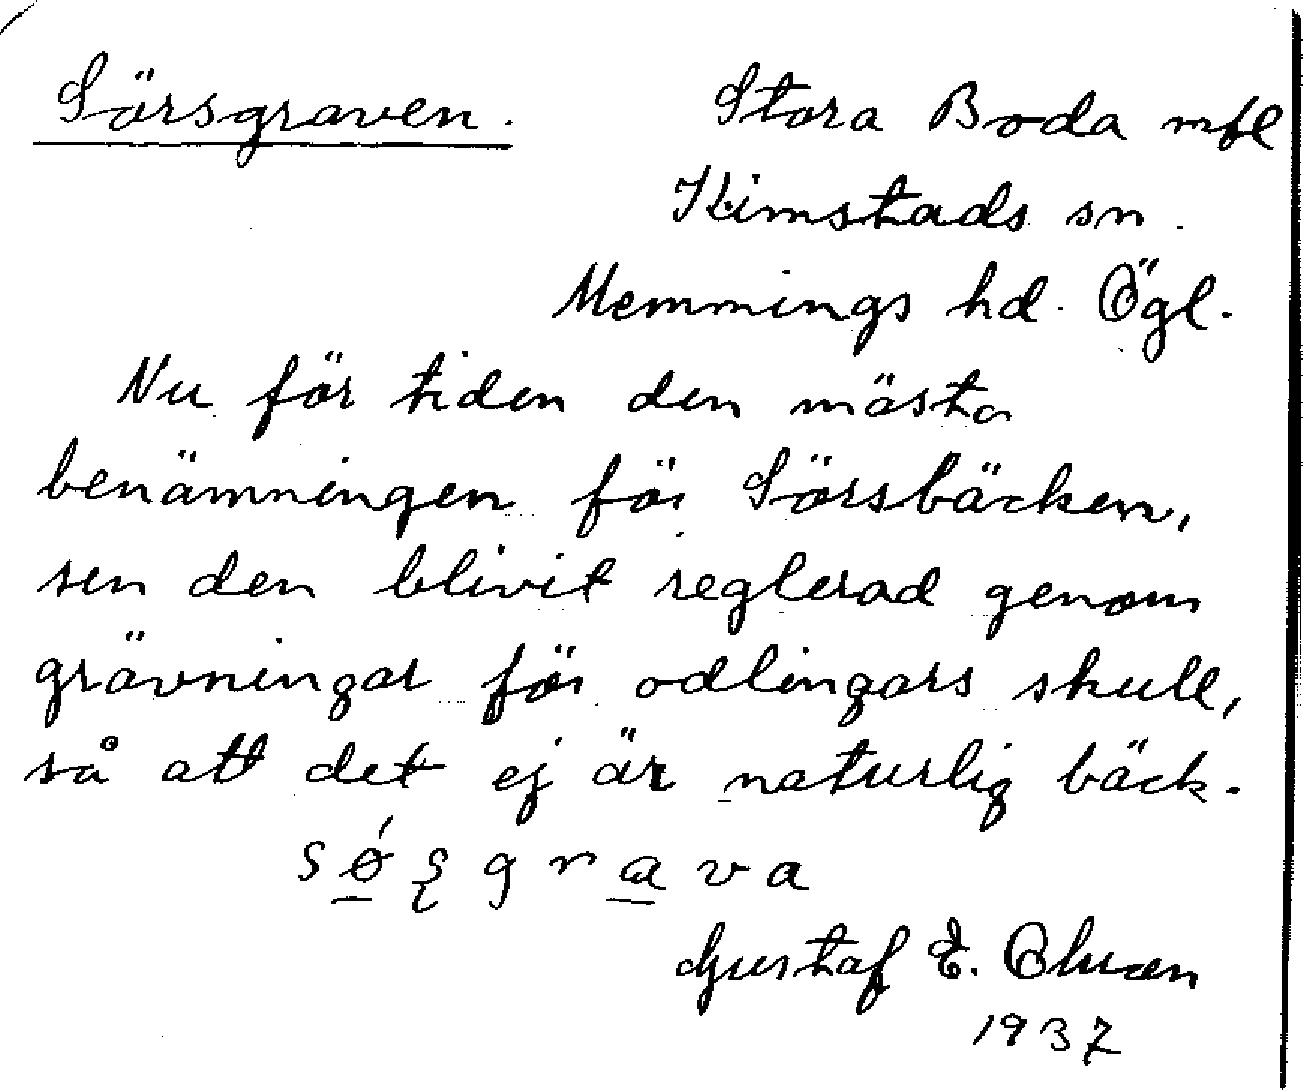 Sörsgraven.
Stora Boda mfl
Kimstads sn.
Memmings hd. Ögl.
Nu för tiden den mästa
benämningen för Sörsbäcken,
sen den blivit reglerad genom
grävningar för odlingars skull,
så att det ej är naturlig bäck.
Gustaf E.
1937